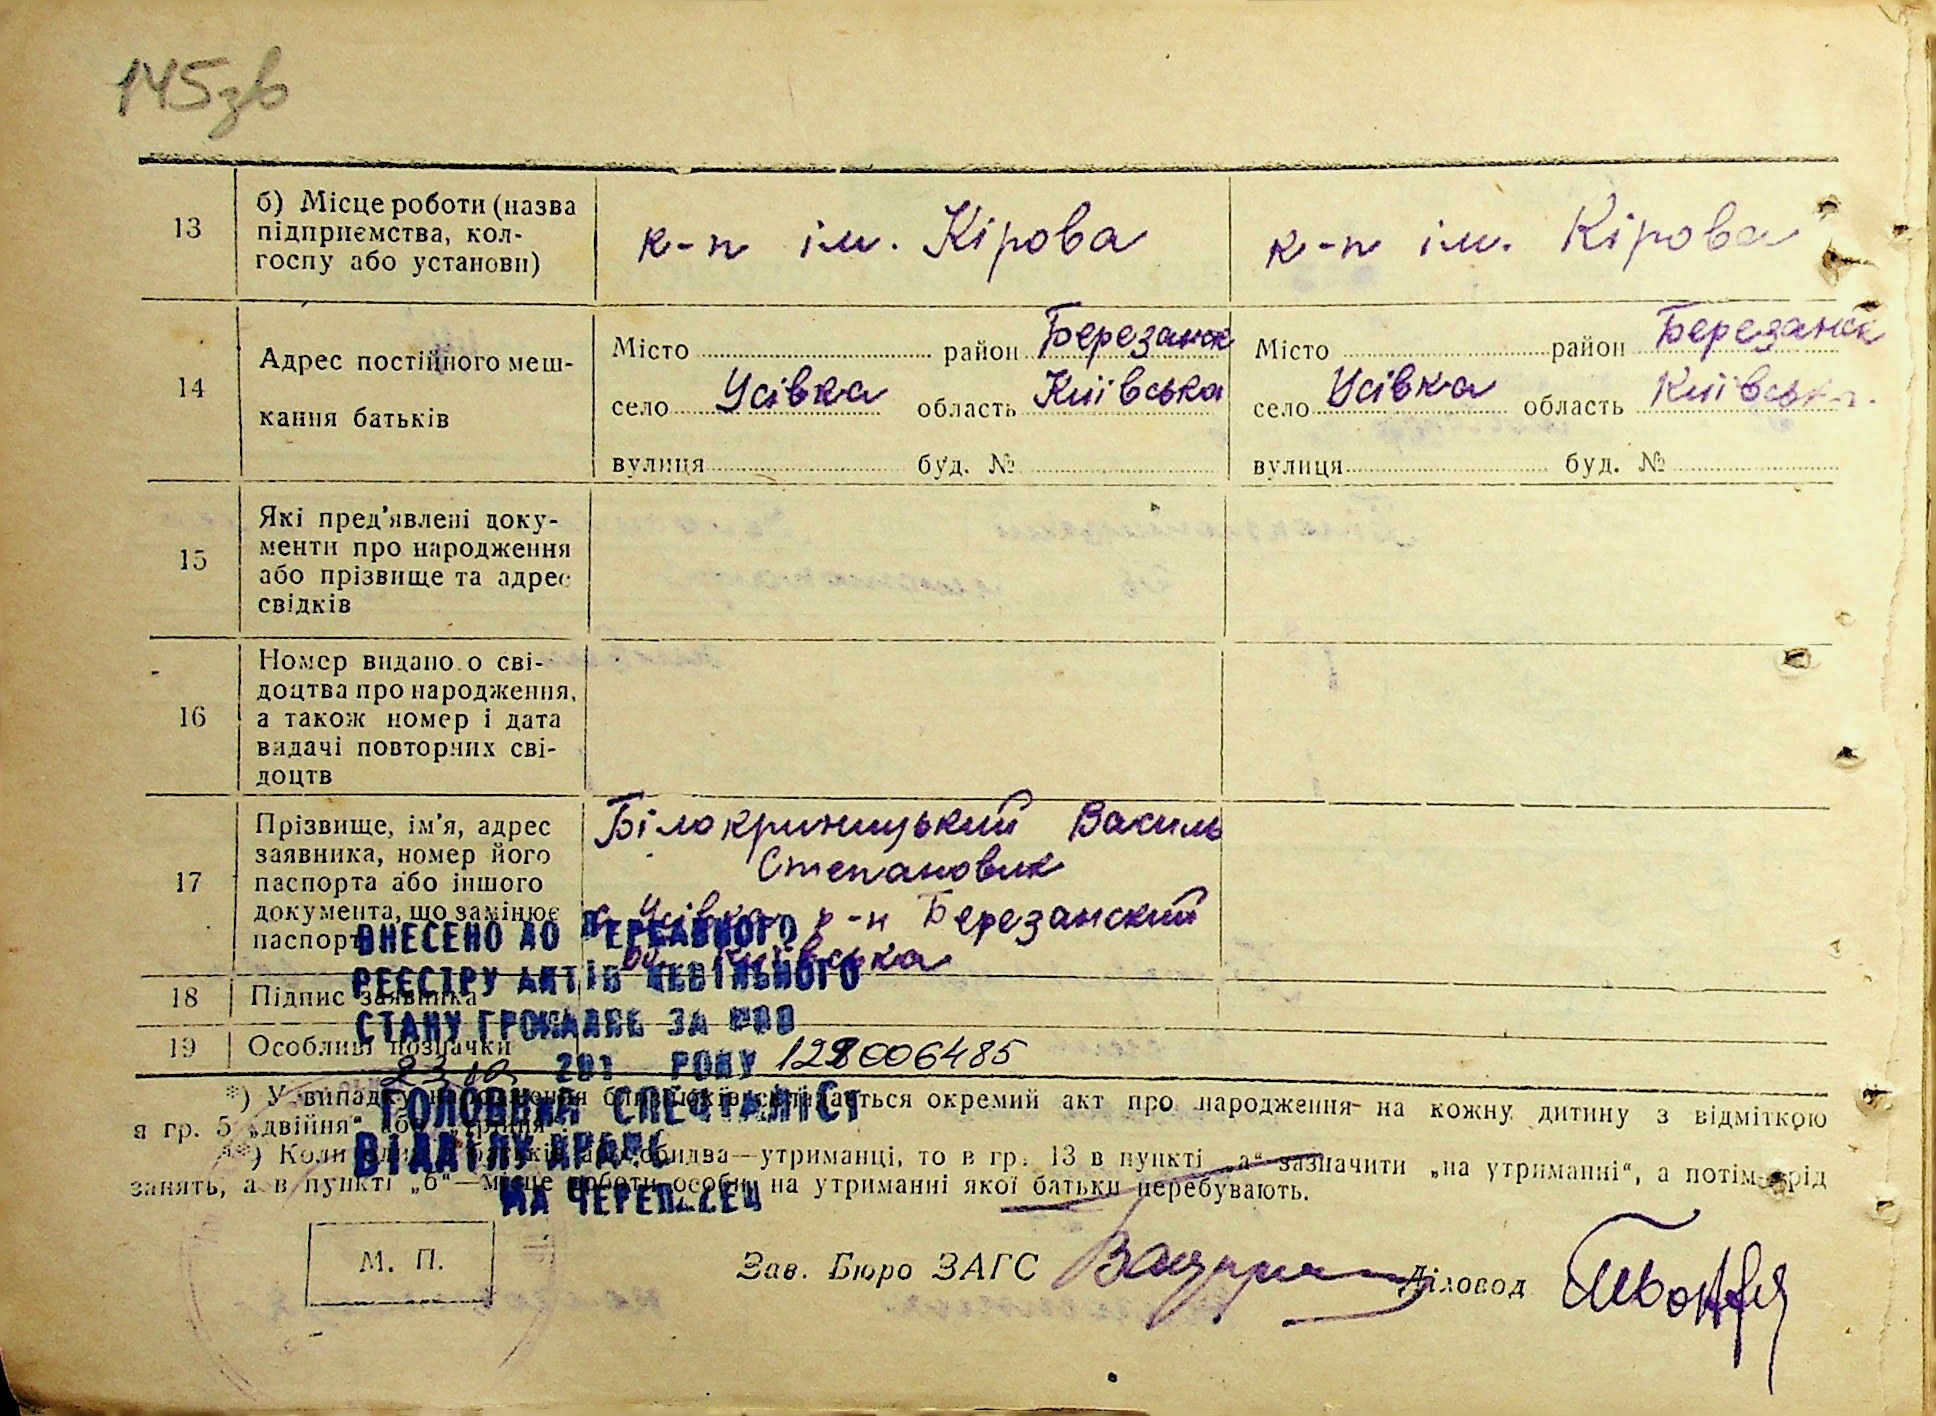 145зв
13
б) Місце роботи (назва
підприємства, кол-
госпу або установи)
к-п ім. Кірова
к-п ім. Кірова
14
Адрес постійного меш-
кання батьків
Місто район Березанск
село Усівка область Київська
вулиця буд. №
Місто район Березанск
село Усівка область Київська
вулиця буд. №
15
Які пред’явлені доку-
менти про народження
або прізвище та адрес
свідків
16
Номер видано о сві-
доцтва про народження,
а також номер і дата
видачі повторних сві-
доцтв
17
Прізвище, ім’я, адрес
заявника, номер його
паспорта або іншого
документа, що замінює
паспорт
Білокриницький Василь
Степанович
с Усівка р-н Березанский
Київська
18
Підпис заявника
19
Особливі позначки
ВНЕСЕНО ДО ДЕРЖАВНОГО
РЕЄСТРУ АКТІВ ЦИВІЛЬНОГО
СТАНУ ГРОМАДЯН ЗА
201 РОКУ 128006485
ГОЛОВНИЙ СПЕЦІАЛІСТ
ВІДДІЛУ ДРАЦС
*) У випадку народження близнюків складається окремий акт про народження на кожну дитину з відміткою
в гр. 5 „двійня“ або „трійня“.
**) Коли один з батьків або обидва—утриманці, то в гр. 13 в пункті „а“ зазначити „на утриманні“, а потім рід
занять, а в пункті „б“—місце роботи особи, на утриманні якої батьки перебувають.
М. П.
Зав. Бюро ЗАГС
Діловод